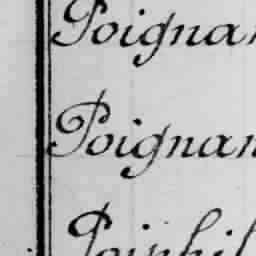 Poignan
Poignan
Poiphil